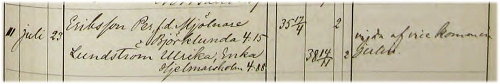 11 juli 23 Eriksson Per f.d. Mjölnare 35 17/4 2 vigda af vice komminister
Björklunda 4.15
Lundström Ulrika, Enka 38 14/11 2
Hjelmarsholm 4.88